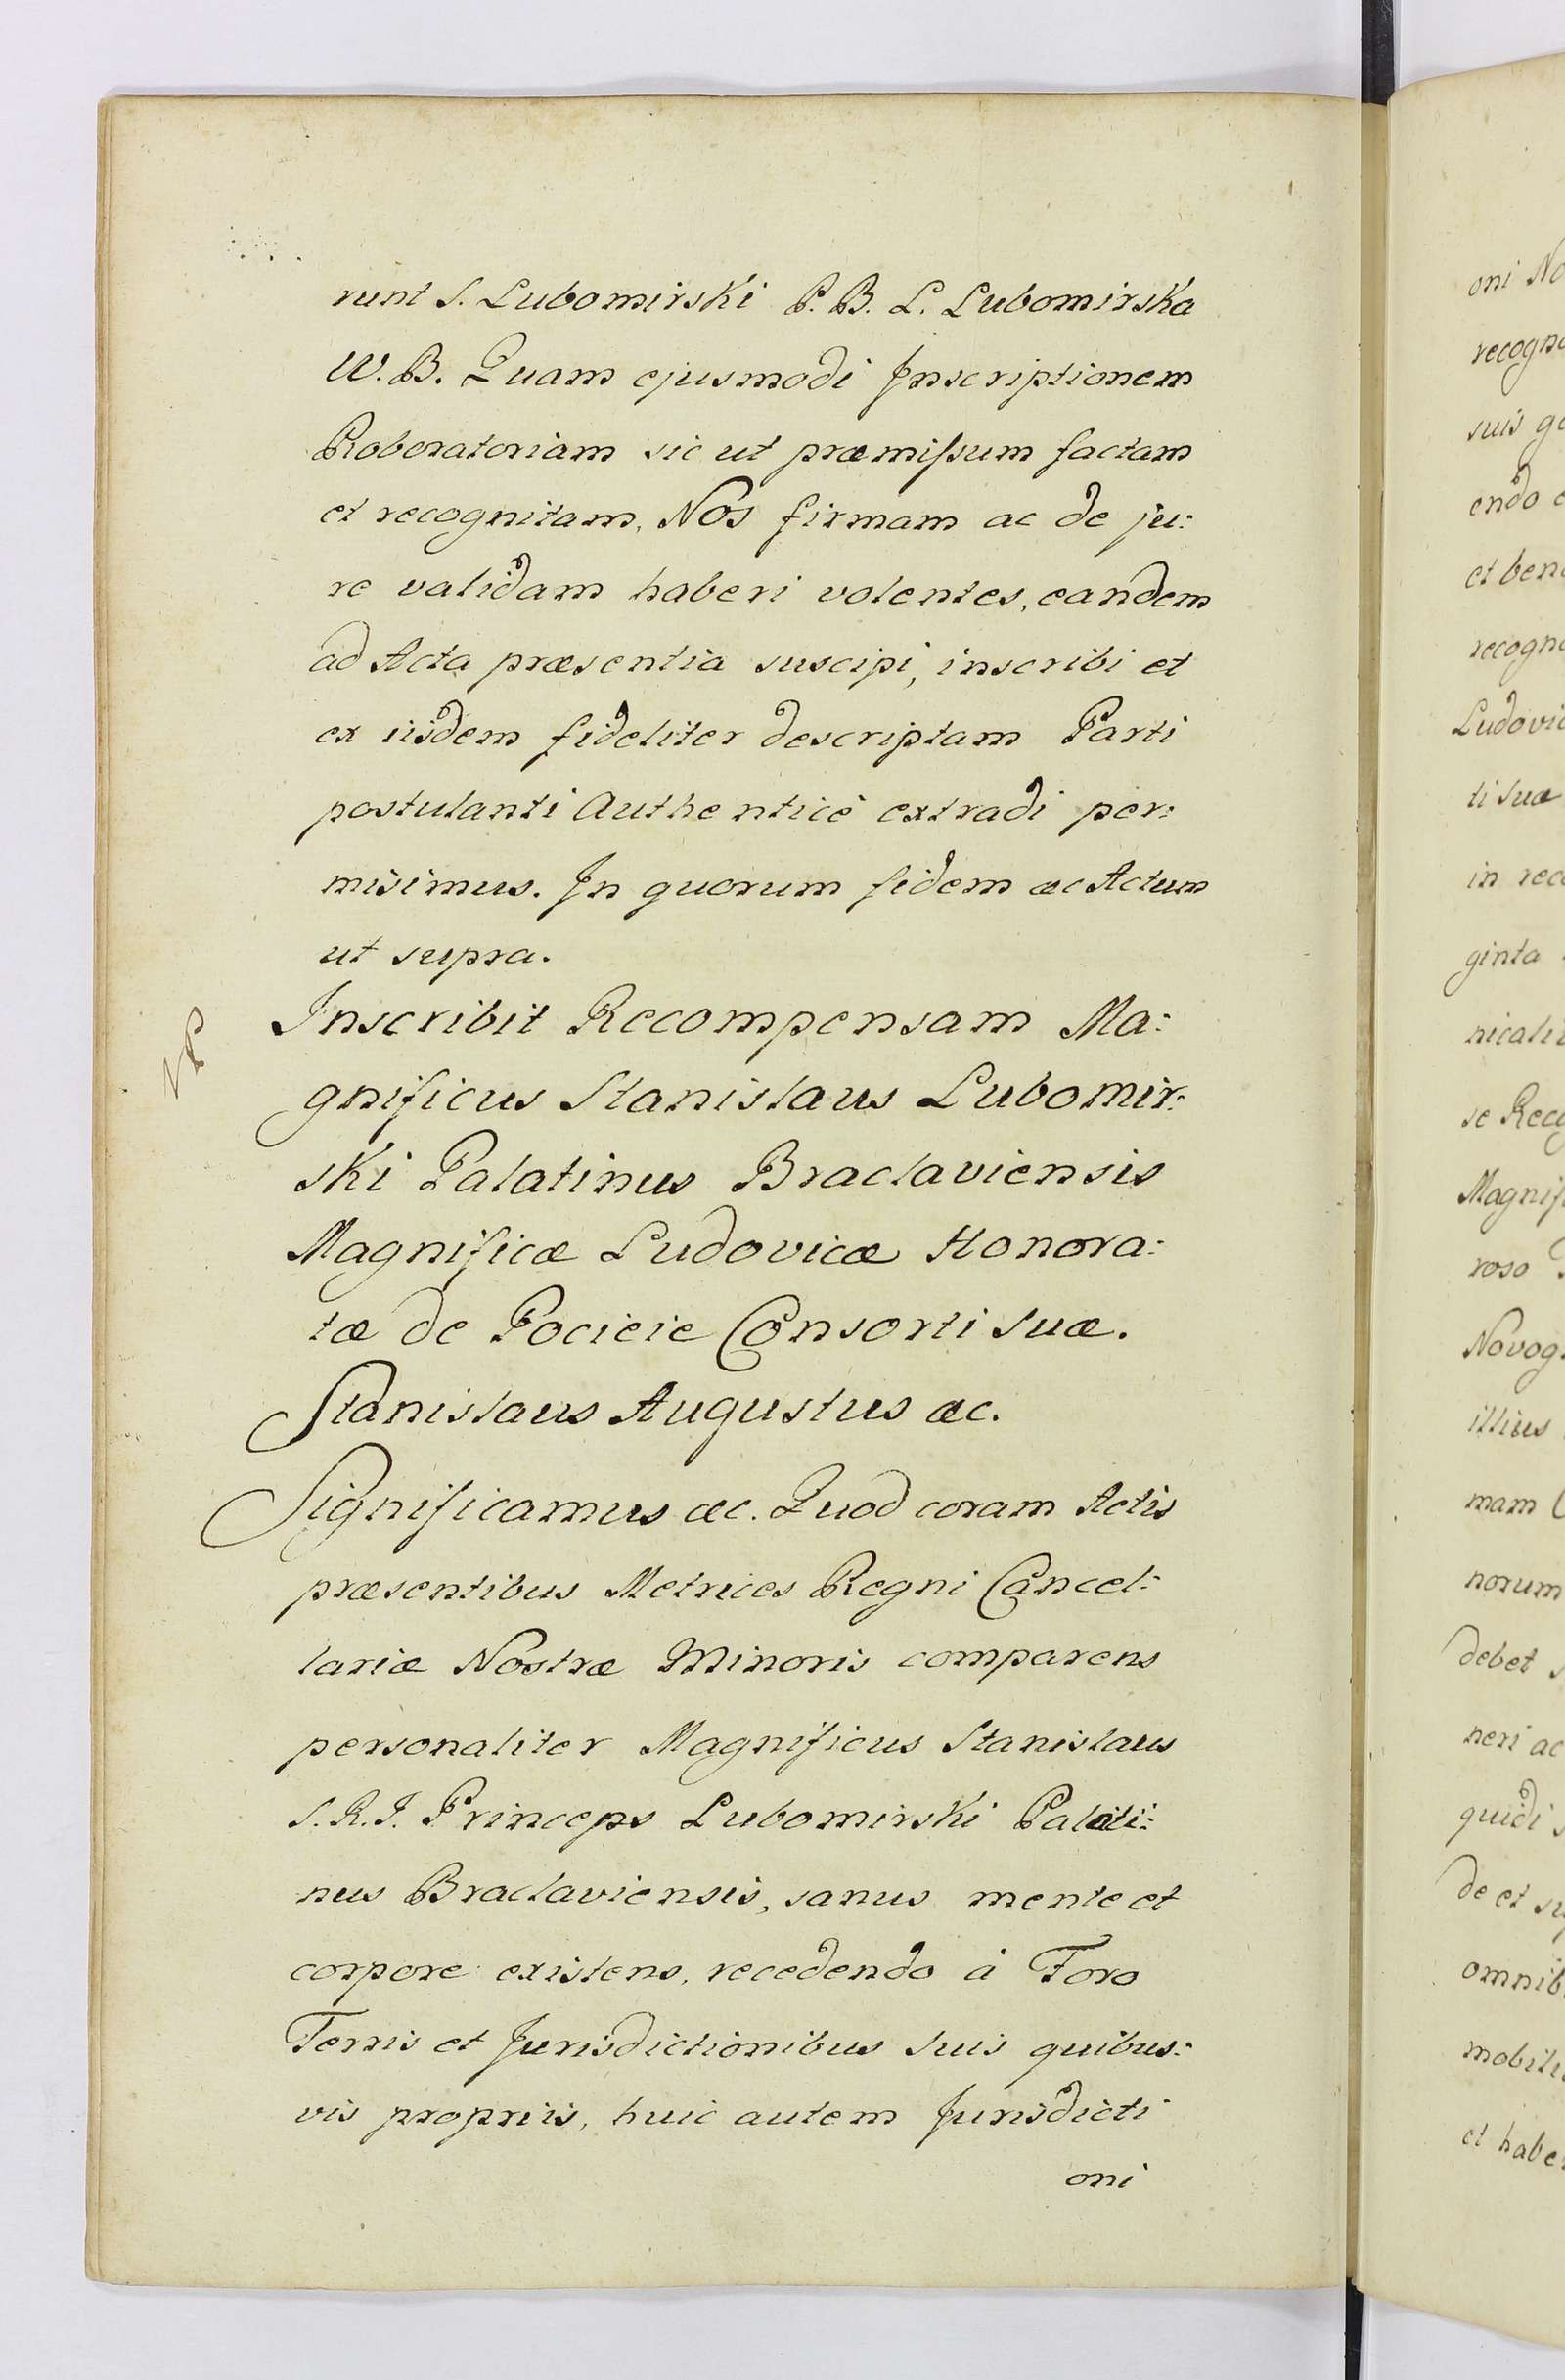 runt S. Lubomirski P. B. L. Lubomirska
W. B. Quam ejusmodi Jnscriptionem
Roboratoriam sic ut præmissum factam
et recognitam, Nos firmam ac de ju:
re validam haberi volentes, eandem
ad Acta præsentia suscipi, inscribi et
ex iisdem fideliter descriptam Parti
postulanti Authenticè extradi per:
misimus. Jn quorum fidem &c Actum
ut supra.
Inscribit Recompensam Ma:
gnificus Stanislaus Lubomir:
ski Palatinus Braclaviensis
Magnificæ Ludovicæ Honora:
tæ de Pocieie Consorti suæ.
Stanislaus Augustus &c.
Significamus &c. Quod coram Actis
præsentibus Metrices Regni Cancel:
lariæ Nostræ Minoris comparens
personaliter Magnificus Stanislaus
S. R. J. Princeps Lubomirski Palati:
nus Braclaviensis, sanus mente et
corpore existens, recedendo à Foro
Terris et Jurisdictionibus suis quibus:
vis propriis, huic autem Jurisdicti
oni
oni No
recogno
suis ge
endo
et ben
recogno
Ludovic
ti suæ
in rec
ginta
nicali
se Reco
Magnifi
roso
Novog
illius
mam
norum
debet s
neri ac
quidi s
de et su
omnib
mobili
et habe